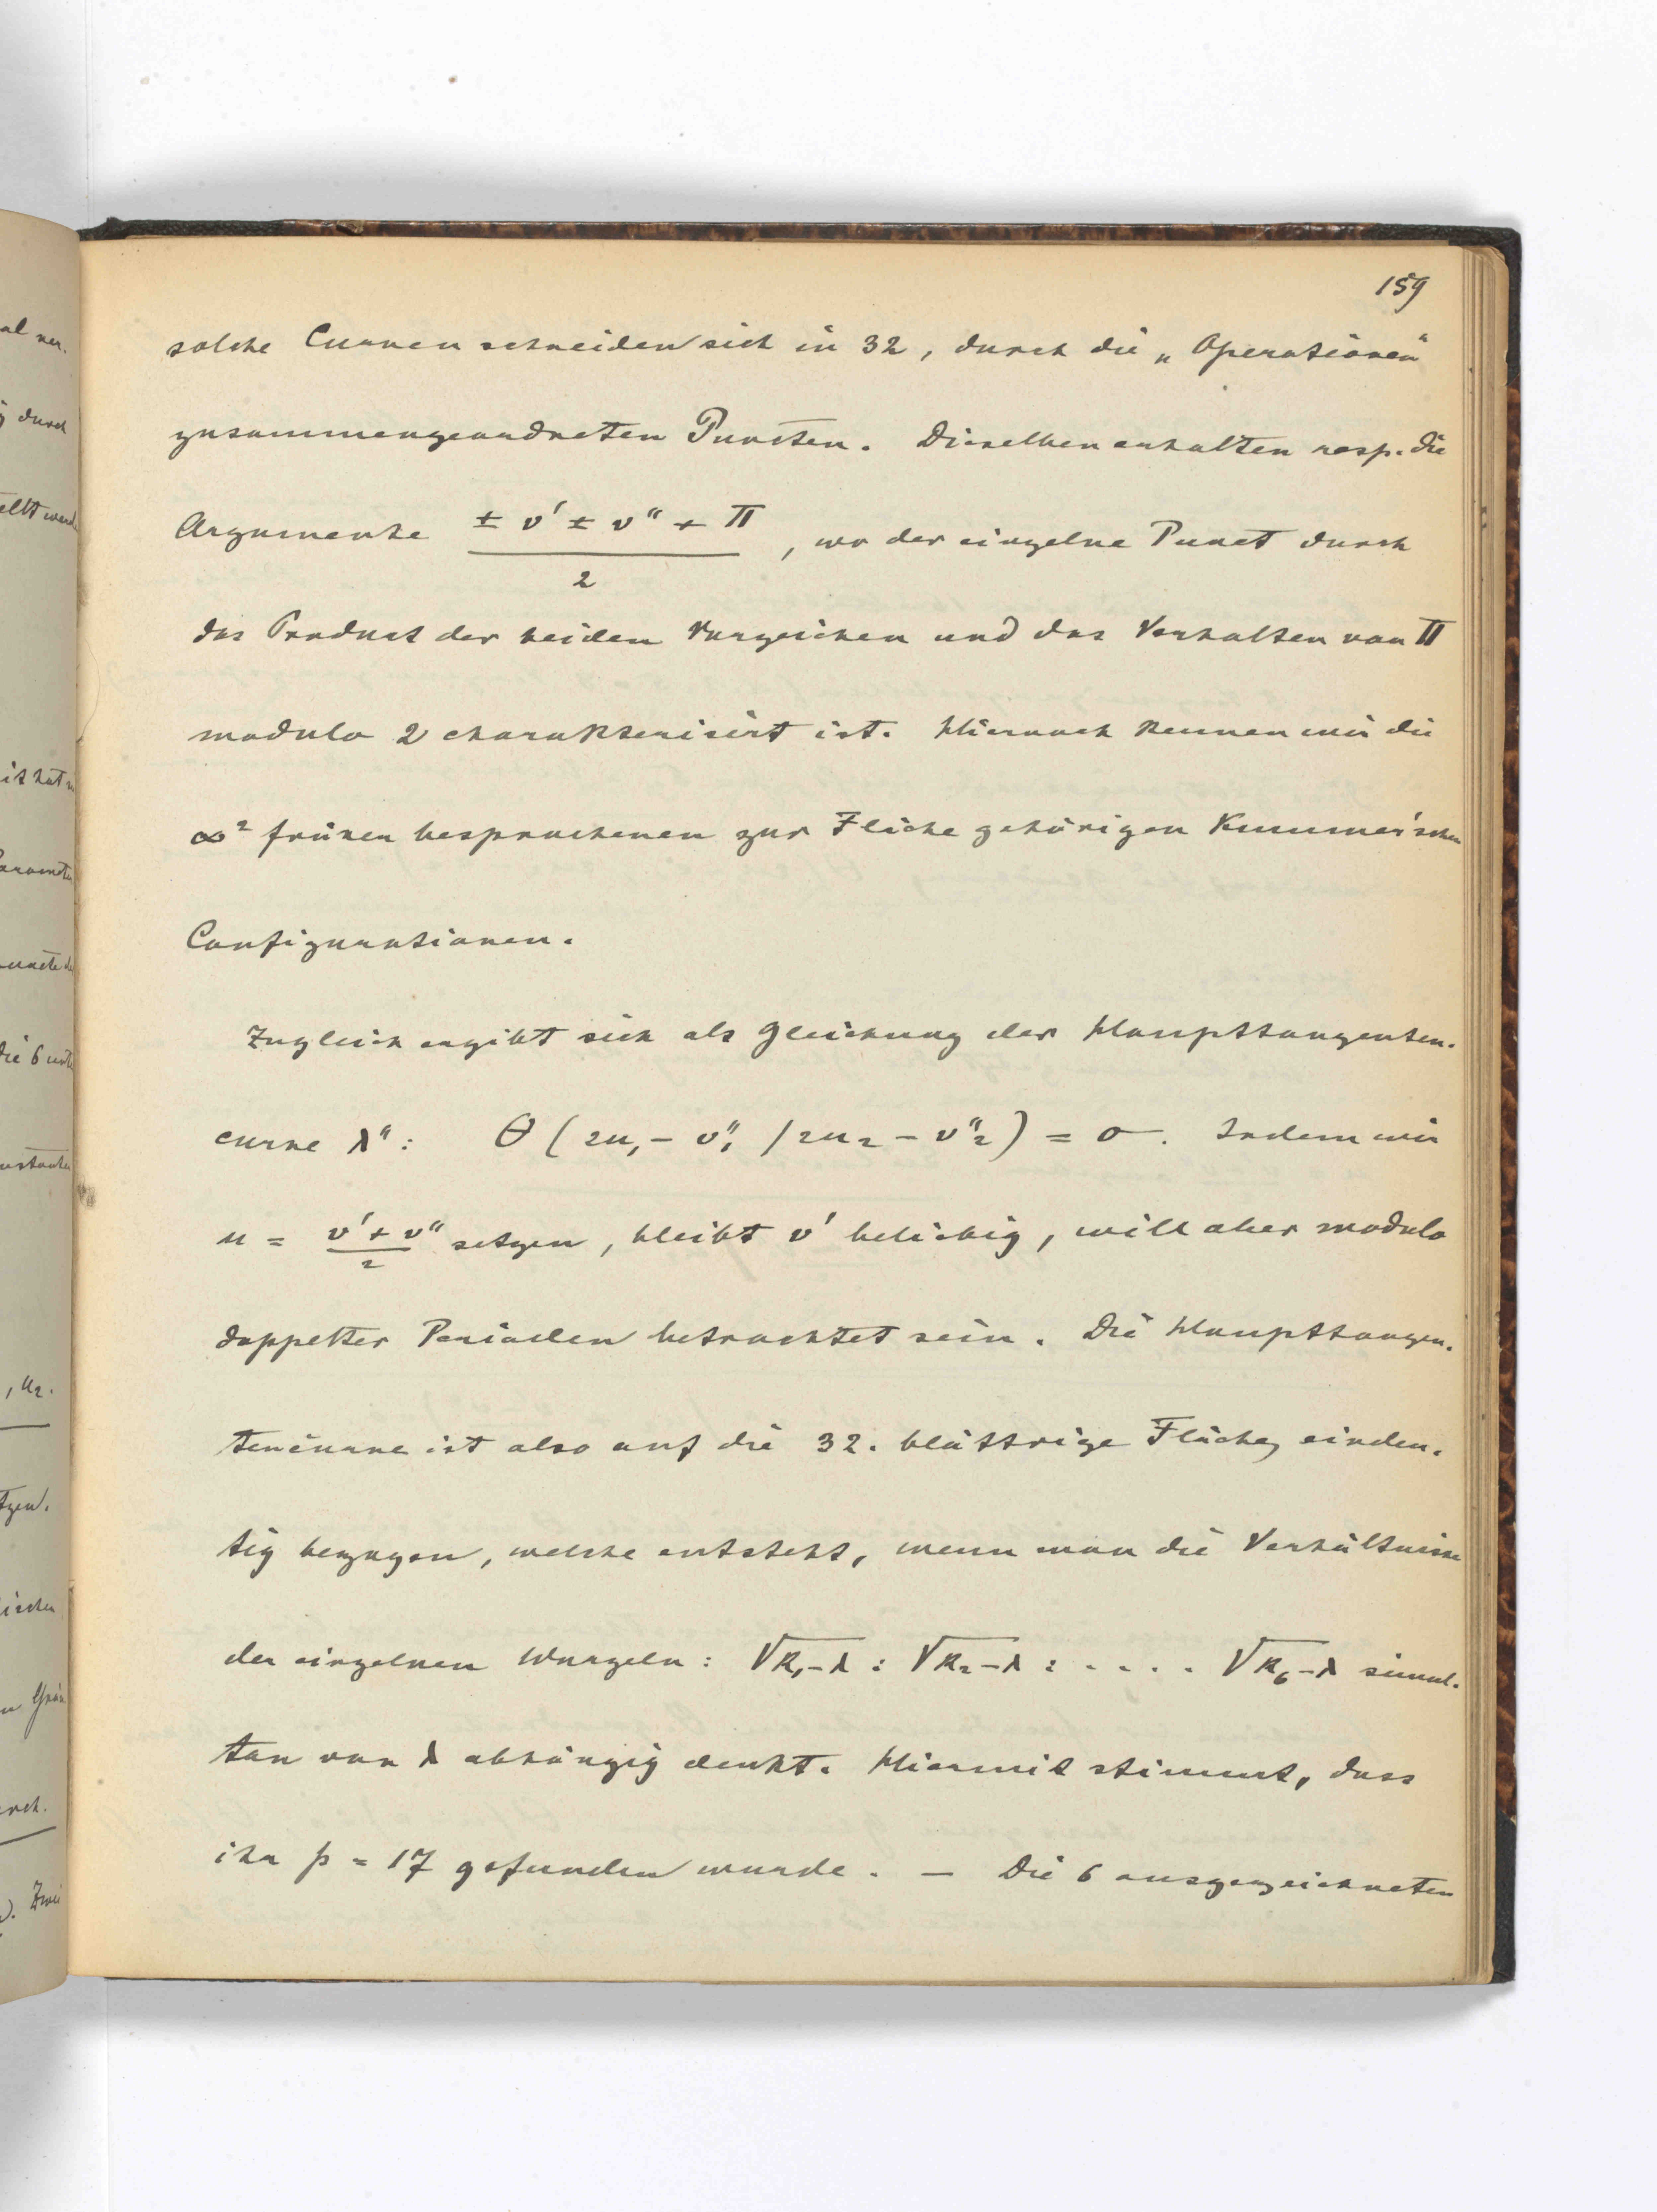 159
solche Curven schneiden sich in 32, durch die „Operationen“
zusammengeordneten Puncten. Dieselben erhalten resp. die
Argumente (± v' ± v'' + Π)/2, wo der einzelne Punct durch
das Product der beiden Vorzeichen und das Verhalten von Π
modulo 2 charakterisirt ist. Hiernach kennen wir die
∞² früher besprochenen zur Fläche gehörigen Kummer'schen
Configurationen.
Zugleich ergibt sich als Gleichung der Haupttangenten-
curve λ'': θ (2u₁ - v''₁ / 2u₂ - v''₂) = 0. Indem wir
u = (v' + v'')/2 setzen, bleibt v' beliebig, will aber modulo
doppelter Perioden betrachtet sein. Die Haupttangen-
tencurve ist also auf die 32-blättrige Fläche eindeu-
tig bezogen, welche entsteht, wenn man die Verhältnisse
der einzelnen Wurzeln: √k₁-λ : √k₂-λ : .... √k₆-λ simul-
tan von λ abhängig denkt. Hiermit stimmt, dass
ihr p = 17 gefunden wurde. — Die 6 ausgezeichneten